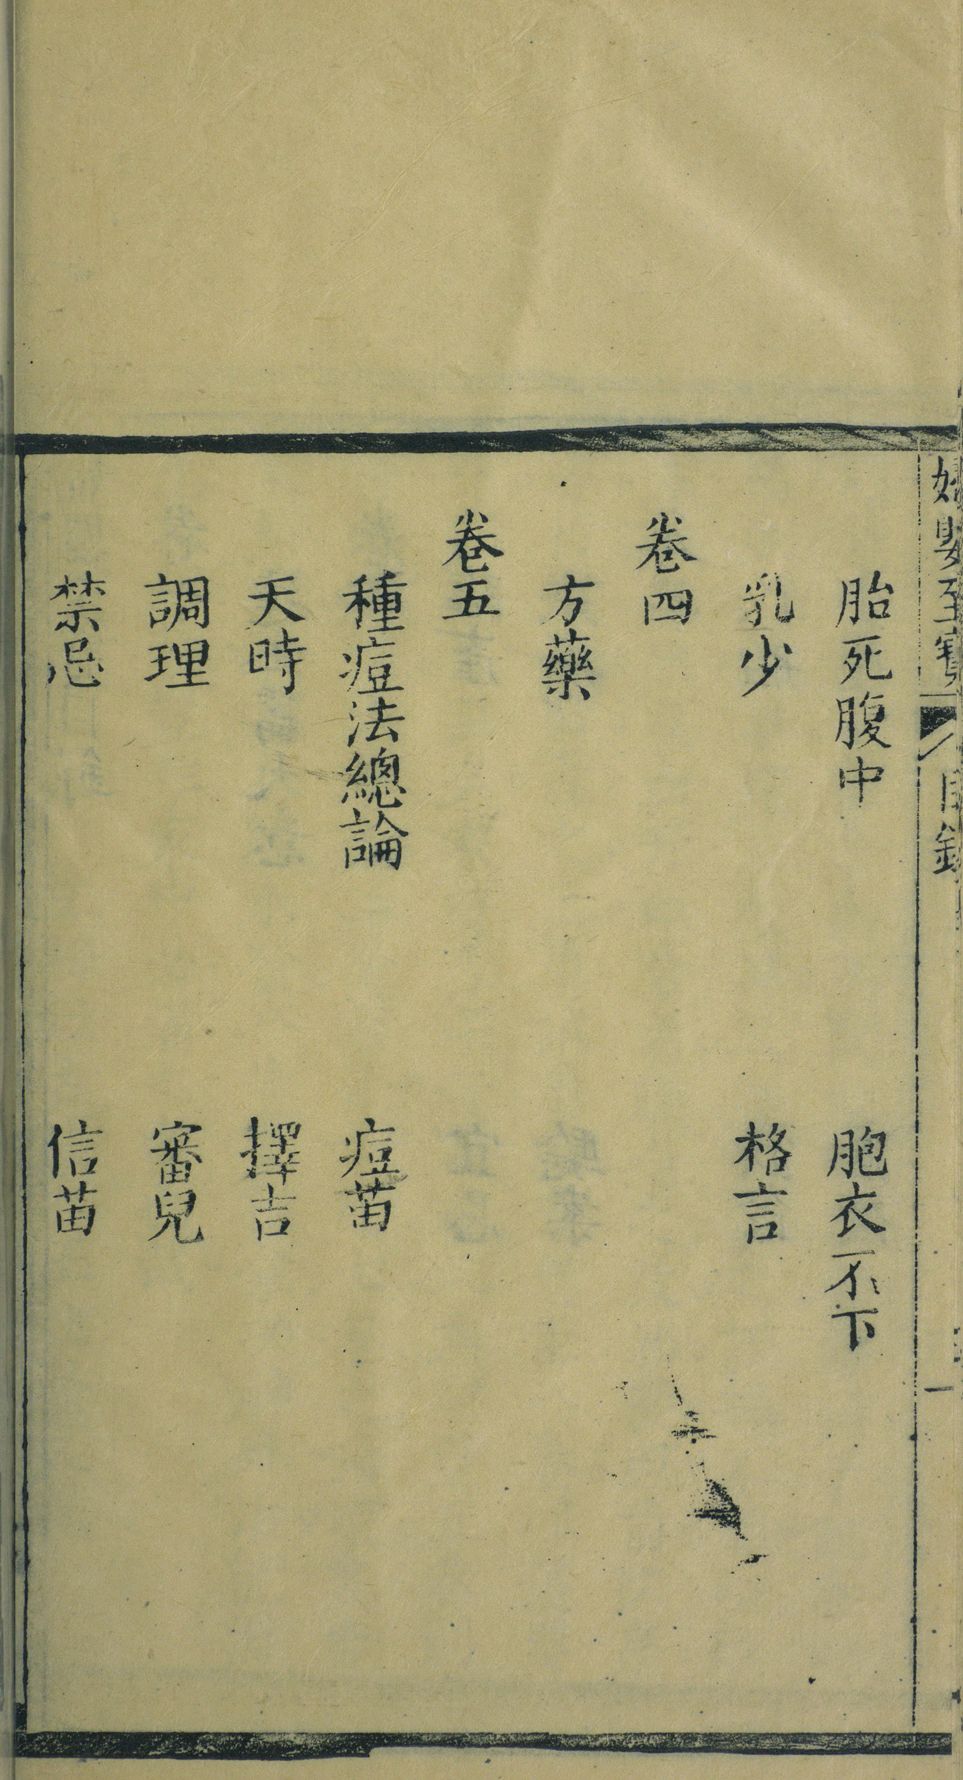 婦嬰至寶 目錄 一
胎死腹中 胞衣不下
乳少 格言
卷四
方藥
卷五
種痘法總論 痘苗
天時 擇吉
調理 審兒
禁忌 信苗